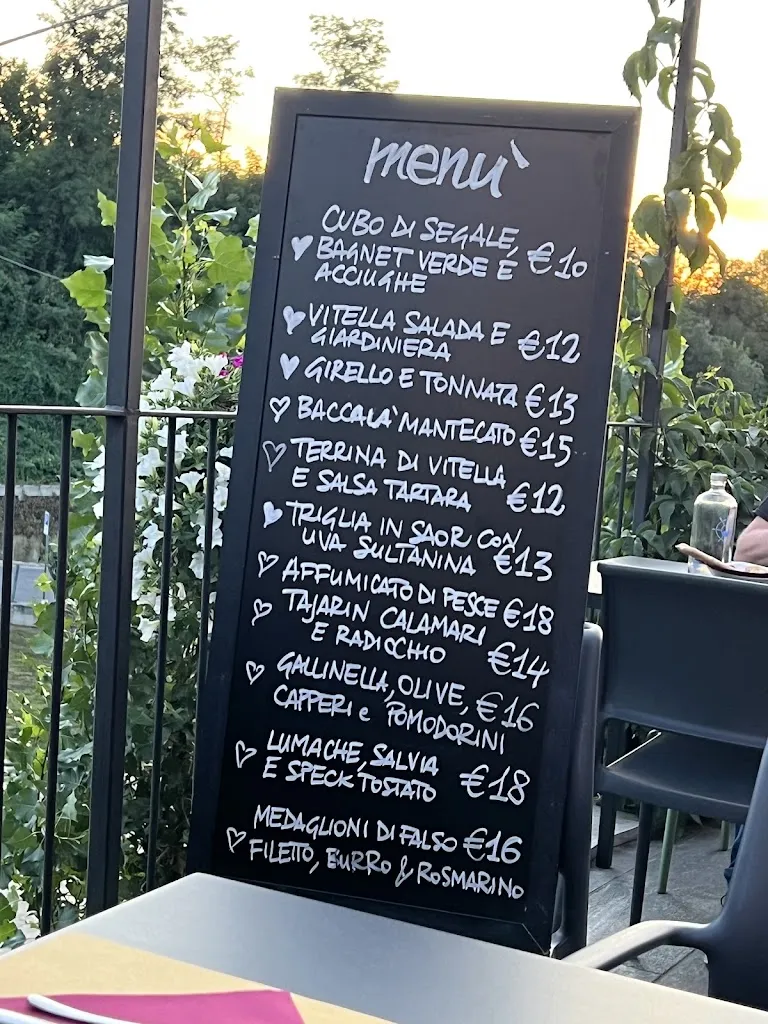 menu`
CUBO DI SEGALE,
BAGNET VERDE E €10
ACCIUGHE
VITELLA SALADA E €12
GIARDINIERA
GIRELLO E TONNATA €13
BACCALA' MANTECATO €15
TERRINA DI VITELLA
E SALSA TARTARA €12
TRIGLIA IN SAOR CON
UVA SULTANINA €13
AFFUMICATO DI PESCE €18
TAJARIN CALAMARI
E RADICCHIO €14
GALLINELLA, OLIVE, €16
CAPPERI e POMODORINI
LUMACHE, SALVIA
E SPECK TOSTATO €18
MEDAGLIONI DI FALSO €16
FILETTO, BURRO & ROSMARINO